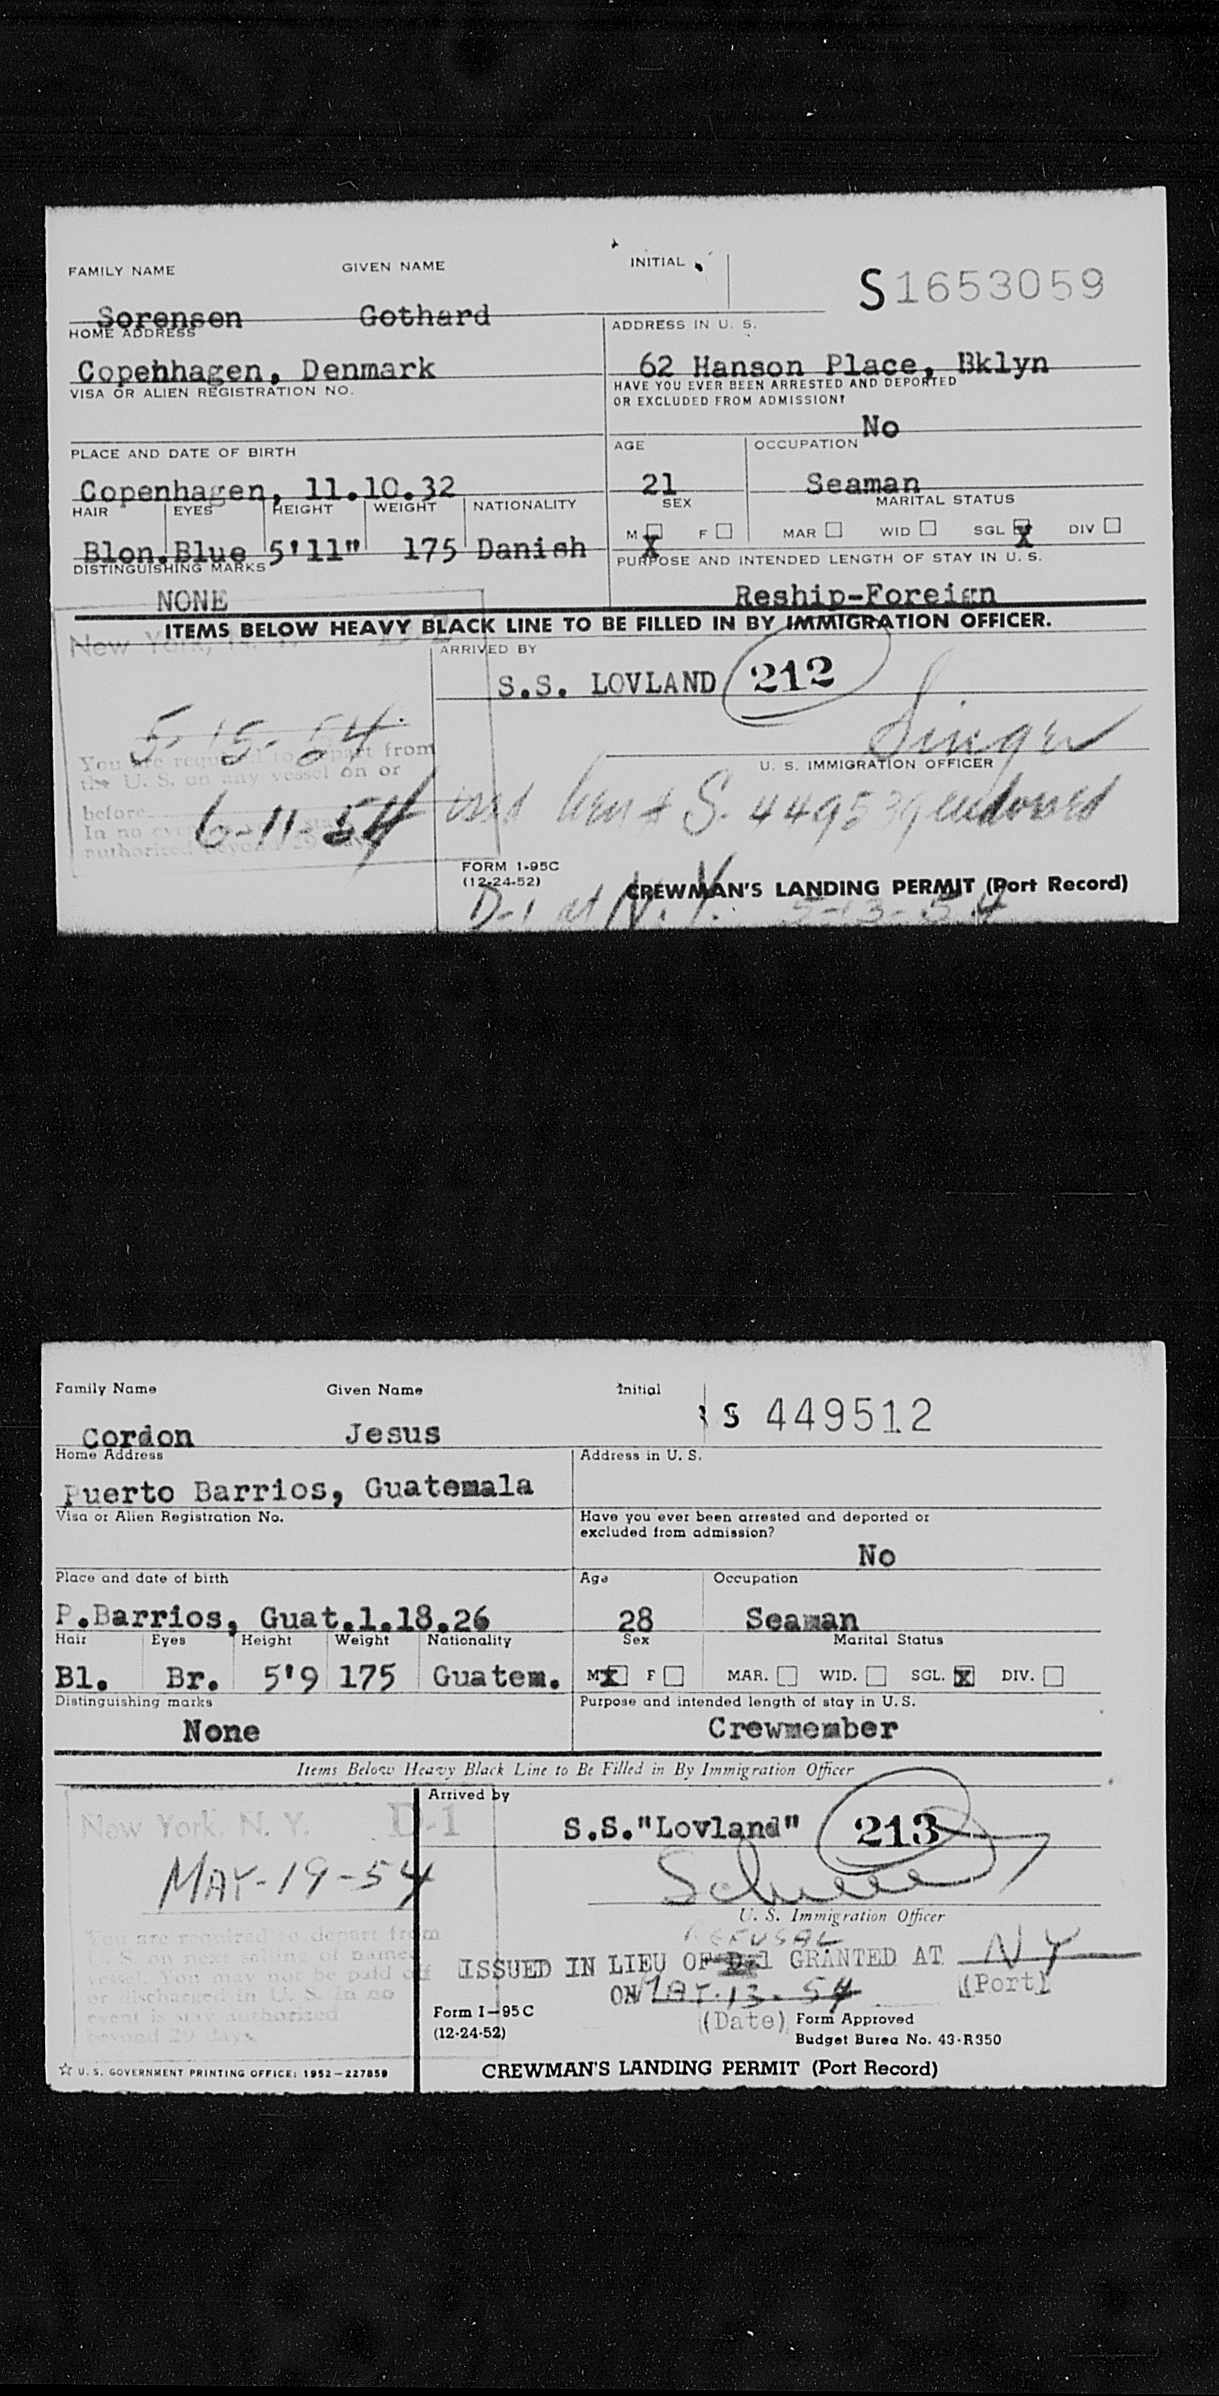 FAMILY NAME GIVEN NAME INITIAL
S1653059
Sorensen Gothard
HOME ADDRESS ADDRESS IN U. S.
Copehhagen, Denmark 62 Hanson Place, Bklyn
VISA OR ALIEN REGISTRATION NO. HAVE YOU EVER BEEN ARRESTED AND DEPORTED
OR EXCLUDED FROM ADMISSION?
No
PLACE AND DATE OF BIRTH AGE OCCUPATION
Copenhagen, 11.10.32 21 Seaman
HAIR EYES HEIGHT WEIGHT NATIONALITY SEX MARITAL STATUS
M X F MAR WID SGL X DIV
Blon. Blue 5'11" 175 Danish
DISTINGUISHING MARKS PURPOSE AND INTENDED LENGTH OF STAY IN U. S.
NONE Reship-Foreign
ITEMS BELOW HEAVY BLACK LINE TO BE FILLED IN BY IMMIGRATION OFFICER.
New York, N. Y.
ARRIVED BY
S.S. LOVLAND 212
5-15-54
Singer
You are required to depart from
U. S. IMMIGRATION OFFICER
the U. S. on any vessel on or
before
6-11-54
S. 449539 endorsed
In no event
authorized beyond 29 days
FORM 1-95C
(12-24-52)
CREWMAN'S LANDING PERMIT (Port Record)
D-1 at N.Y. 5-13-54
Family Name Given Name Initial
S 449512
Cordon Jesus
Home Address Address in U. S.
Puerto Barrios, Guatemala
Visa or Alien Registration No. Have you ever been arrested and deported or
excluded from admission?
No
Place and date of birth Age Occupation
P.Barrios, Guat.1.18.26 28 Seaman
Hair Eyes Height Weight Nationality Sex Marital Status
Bl. Br. 5'9 175 Guatem. M X F MAR. WID. SGL. X DIV.
Distinguishing marks Purpose and intended length of stay in U. S.
None Crewmember
Items Below Heavy Black Line to Be Filled in By Immigration Officer
Arrived by
New York, N. Y. D-1
S.S."Lovland" 213
MAY-19-54
U. S. Immigration Officer
You are required to depart from
U. S. on next sailing of named
vessel. You may not be paid off
or discharged in U. S. In no
event is stay authorized
beyond 29 days
REFUSAL
ISSUED IN LIEU OF D-1 GRANTED AT NY
(Port)
ON MAY. 13. 54
(Date)
Form I-95C
(12-24-52)
Form Approved
Budget Burea No. 43-R350
☆ U. S. GOVERNMENT PRINTING OFFICE: 1952—227859
CREWMAN'S LANDING PERMIT (Port Record)